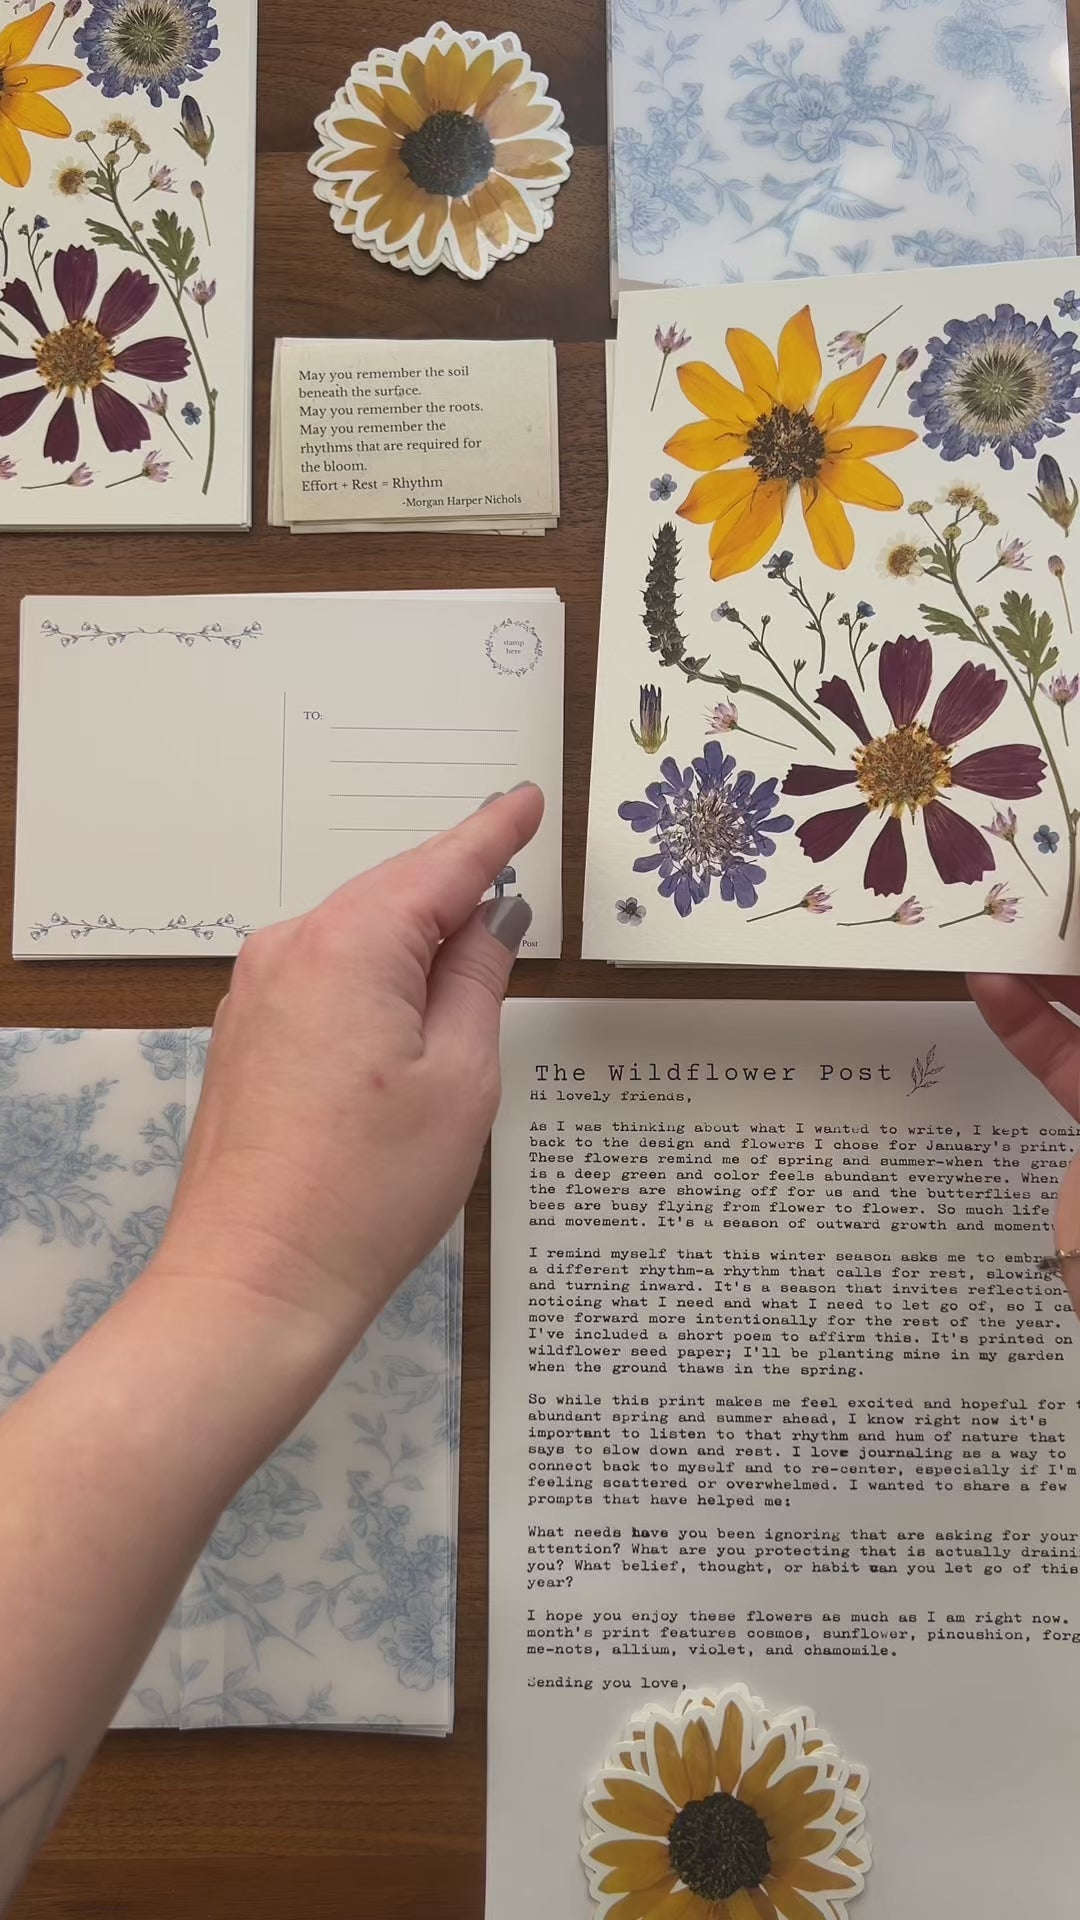 May you remember the soil
beneath the surface.
May you remember the roots.
May you remember the
rhythms that are required for
the bloom.
Effort + Rest = Rhythm
-Morgan Harper Nichols
stamp
here
TO:
Post
The Wildflower Post
Hi lovely friends,
As I was thinking about what I wanted to write, I kept
back to the design and flowers I chose for January's print.
These flowers remind me of spring and summer-when the
is a deep green and color feels abundant everywhere. When
the flowers are showing off for us and the butterflies
bees are busy flying from flower to flower. So much life
and movement. It's a season of outward growth and
I remind myself that this winter season asks me to
a different rhythm-a rhythm that calls for rest, slowing
and turning inward. It's a season that invites reflection-
noticing what I need and what I need to let go of, so I
move forward more intentionally for the rest of the year.
I've included a short poem to affirm this. It's printed on
wildflower seed paper; I'll be planting mine in my garden
when the ground thaws in the spring.
So while this print makes me feel excited and hopeful for
abundant spring and summer ahead, I know right now it's
important to listen to that rhythm and hum of nature that
says to slow down and rest. I love journaling as a way to
connect back to myself and to re-center, especially if I'm
feeling scattered or overwhelmed. I wanted to share a few
prompts that have helped me:
What needs have you been ignoring that are asking for your
attention? What are you protecting that is actually
you? What belief, thought, or habit can you let go of this
year?
I hope you enjoy these flowers as much as I am right now.
month's print features cosmos, sunflower, pincushion,
me-nots, allium, violet, and chamomile.
Sending you love,